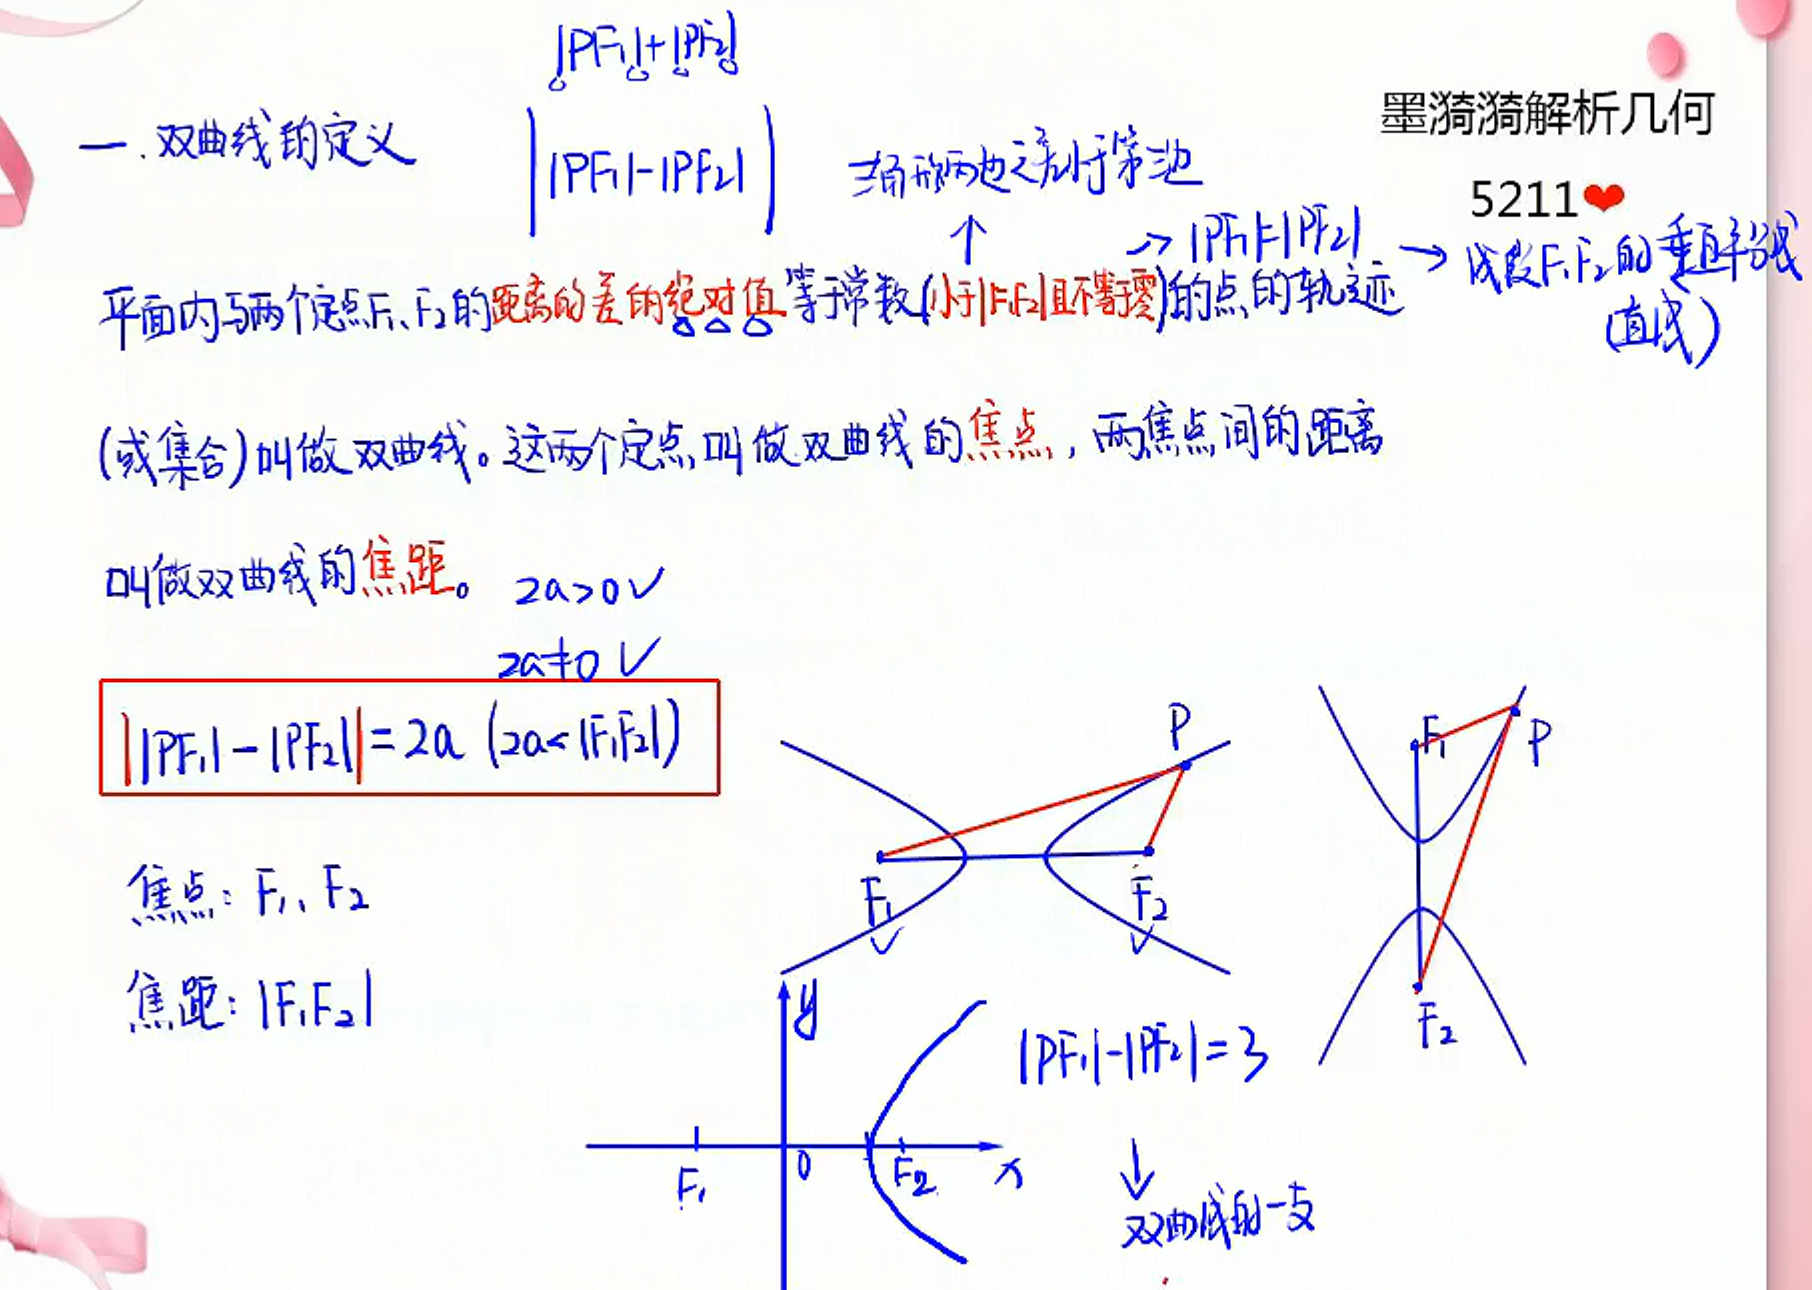 |PF₁|+|PF₂|
一、双曲线的定义
||PF₁|-|PF₂||
三角形两边之差小于第三边
墨漪漪解析几何
5211❤
→ |PF₁|=|PF₂| → 线段F₁F₂的垂直平分线
(直线)
平面内与两个定点F₁、F₂的距离的差的绝对值等于常数(小于|F₁F₂|且不等于零)的点的轨迹
(或集合)叫做双曲线。这两个定点叫做双曲线的焦点，两焦点间的距离
叫做双曲线的焦距。
2a>0✓
2a≠0✓
||PF₁|-|PF₂||=2a (2a<|F₁F₂|)
焦点：F₁、F₂
焦距：|F₁F₂|
P
F₁
F₂
F₁
P
F₂
y
F₁
0
F₂
x
|PF₁|-|PF₂|=3
↓
双曲线的一支